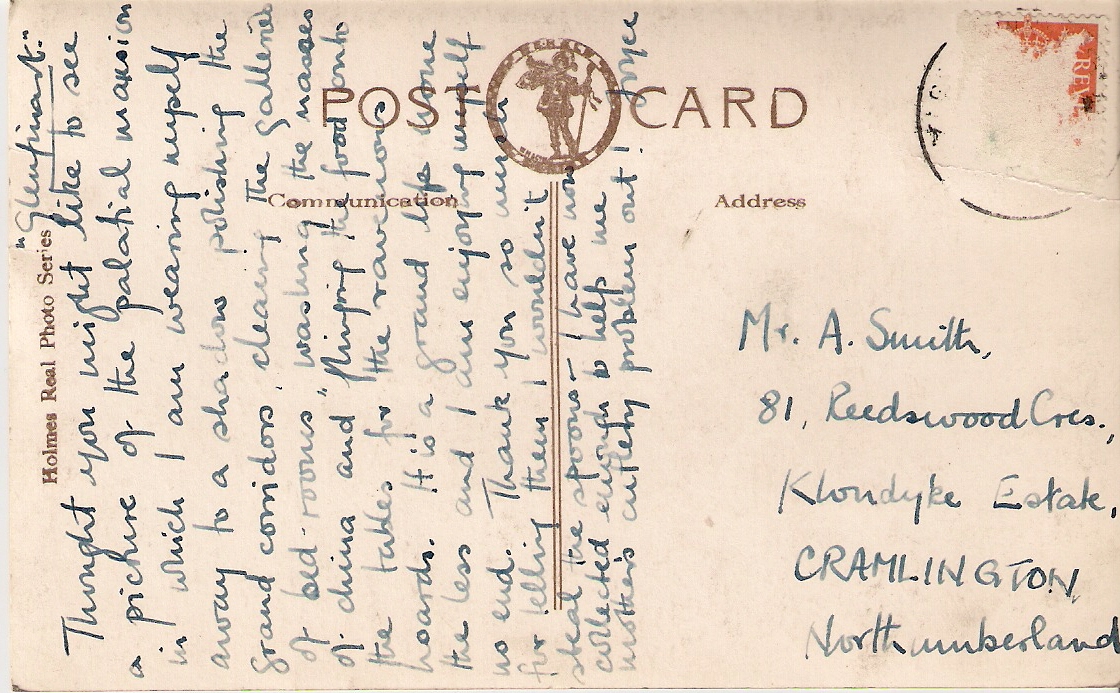 POST CARD
Communication
Address
Holmes Real Photo Series
"Glenfinart".
Thought you might like to see
a picture of the palatial mansion
in which I am wearing myself
away to a shadow polishing the
grand corridors, cleaning the galleries
of bed-rooms, washing the masses
of china and flinging the food onto
the tables for the ravenous
hoards. It is a grand life none
the less and I am enjoying myself
no end. Thank you so much
for telling them I wouldn't
steal the spoons – I have now
collected enough to help me
mother's cutlery problem out! Joyce
Mr. A. Smith,
81, Reedswood Cres.,
Klondyke Estate,
CRAMLINGTON
Northumberland
REV